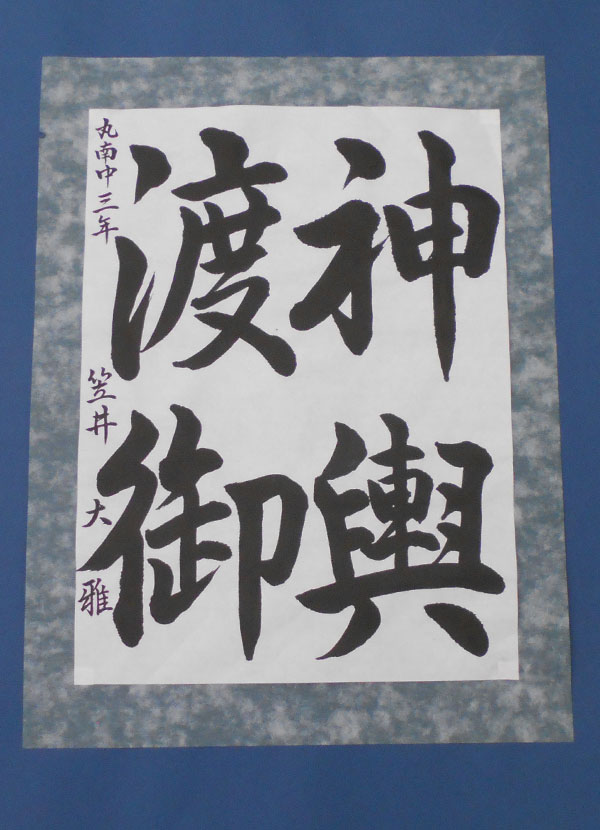 神輿
渡御
丸南中三年 笠井大雅